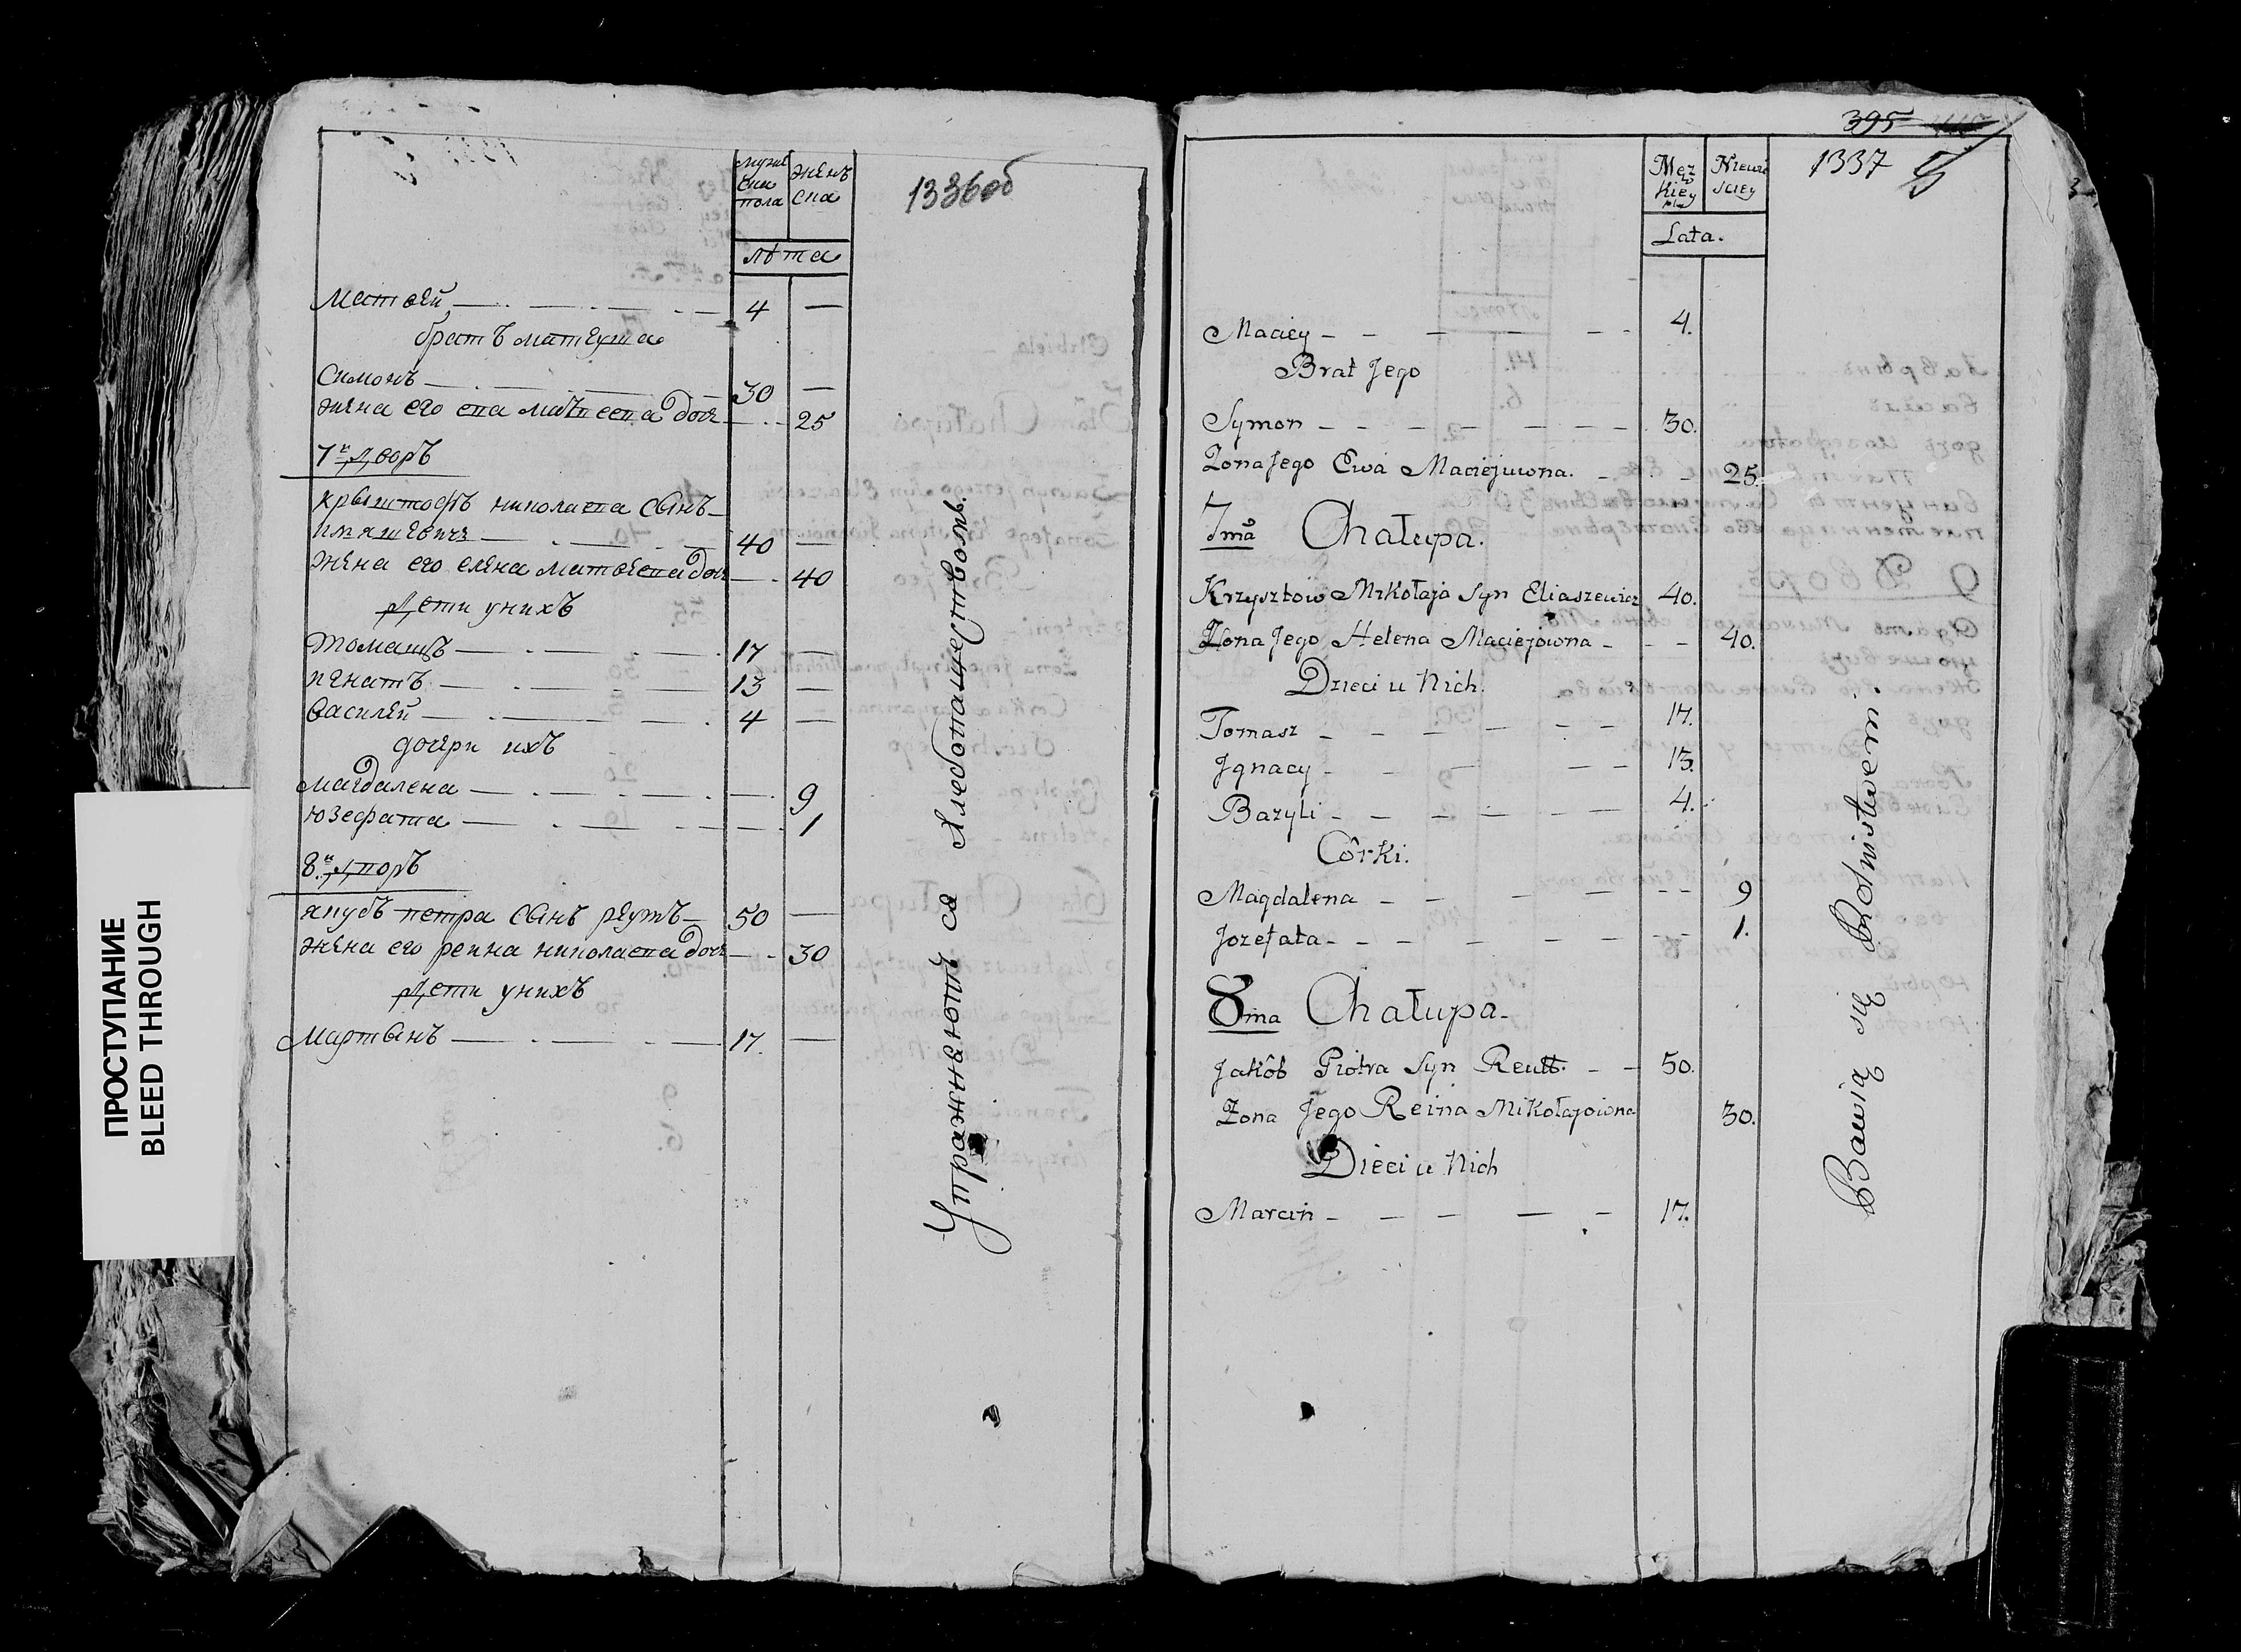 ПРОСТУПАНИЕ
BLEED THROUGH
мужес
ска
пола
женъ
ска
1336об
лѣта
Матвѣй — 4 —
братъ матеуша
Симонъ — 30 —
жена его ева мацѣева дочь — 25
7й Дворъ
Крыштофъ николаева сынъ
— 40 —
жена его елена матвеева дочь — 40
Дети унихъ
Томашъ — 17 —
игнатъ — 13 —
василей — 4 —
дочери ихъ
магдалена — 9
юзефата — 1
8й Дворъ
якубъ петра сынъ реутъ — 50 —
жена его реина николаева дочь — 30
Дети унихъ
Мартынъ — 17. —
Упражняютъ ся Хлебопашествомъ.
395
1337
Męz
kiey
płci
Niewie
skiey
Lata.
Maciey - - - 4.
Brat Jego
Symon - - - 30.
Zona Jego Ewa Maciejuwna. - - 25.
7ma Chałupa.
Krzysztow Mikołaja Syn Eliaszewicz 40.
Zona Jego Helena Maciejowna - - - 40.
Dzieci u Nich.
Tomasz - - - 17.
Jgnacy - - - 13.
Bazyli - - - 4.
Córki.
Magdalena - - - 9
Jozefata - - - 1.
8ma Chałupa.
Jakób Piotra Syn Reutt. - - 50.
Zona Jego Reina Mikołajowna 30.
Dieci u Nich
Marcin - - - 17.
Bawią się Rolnistwem.